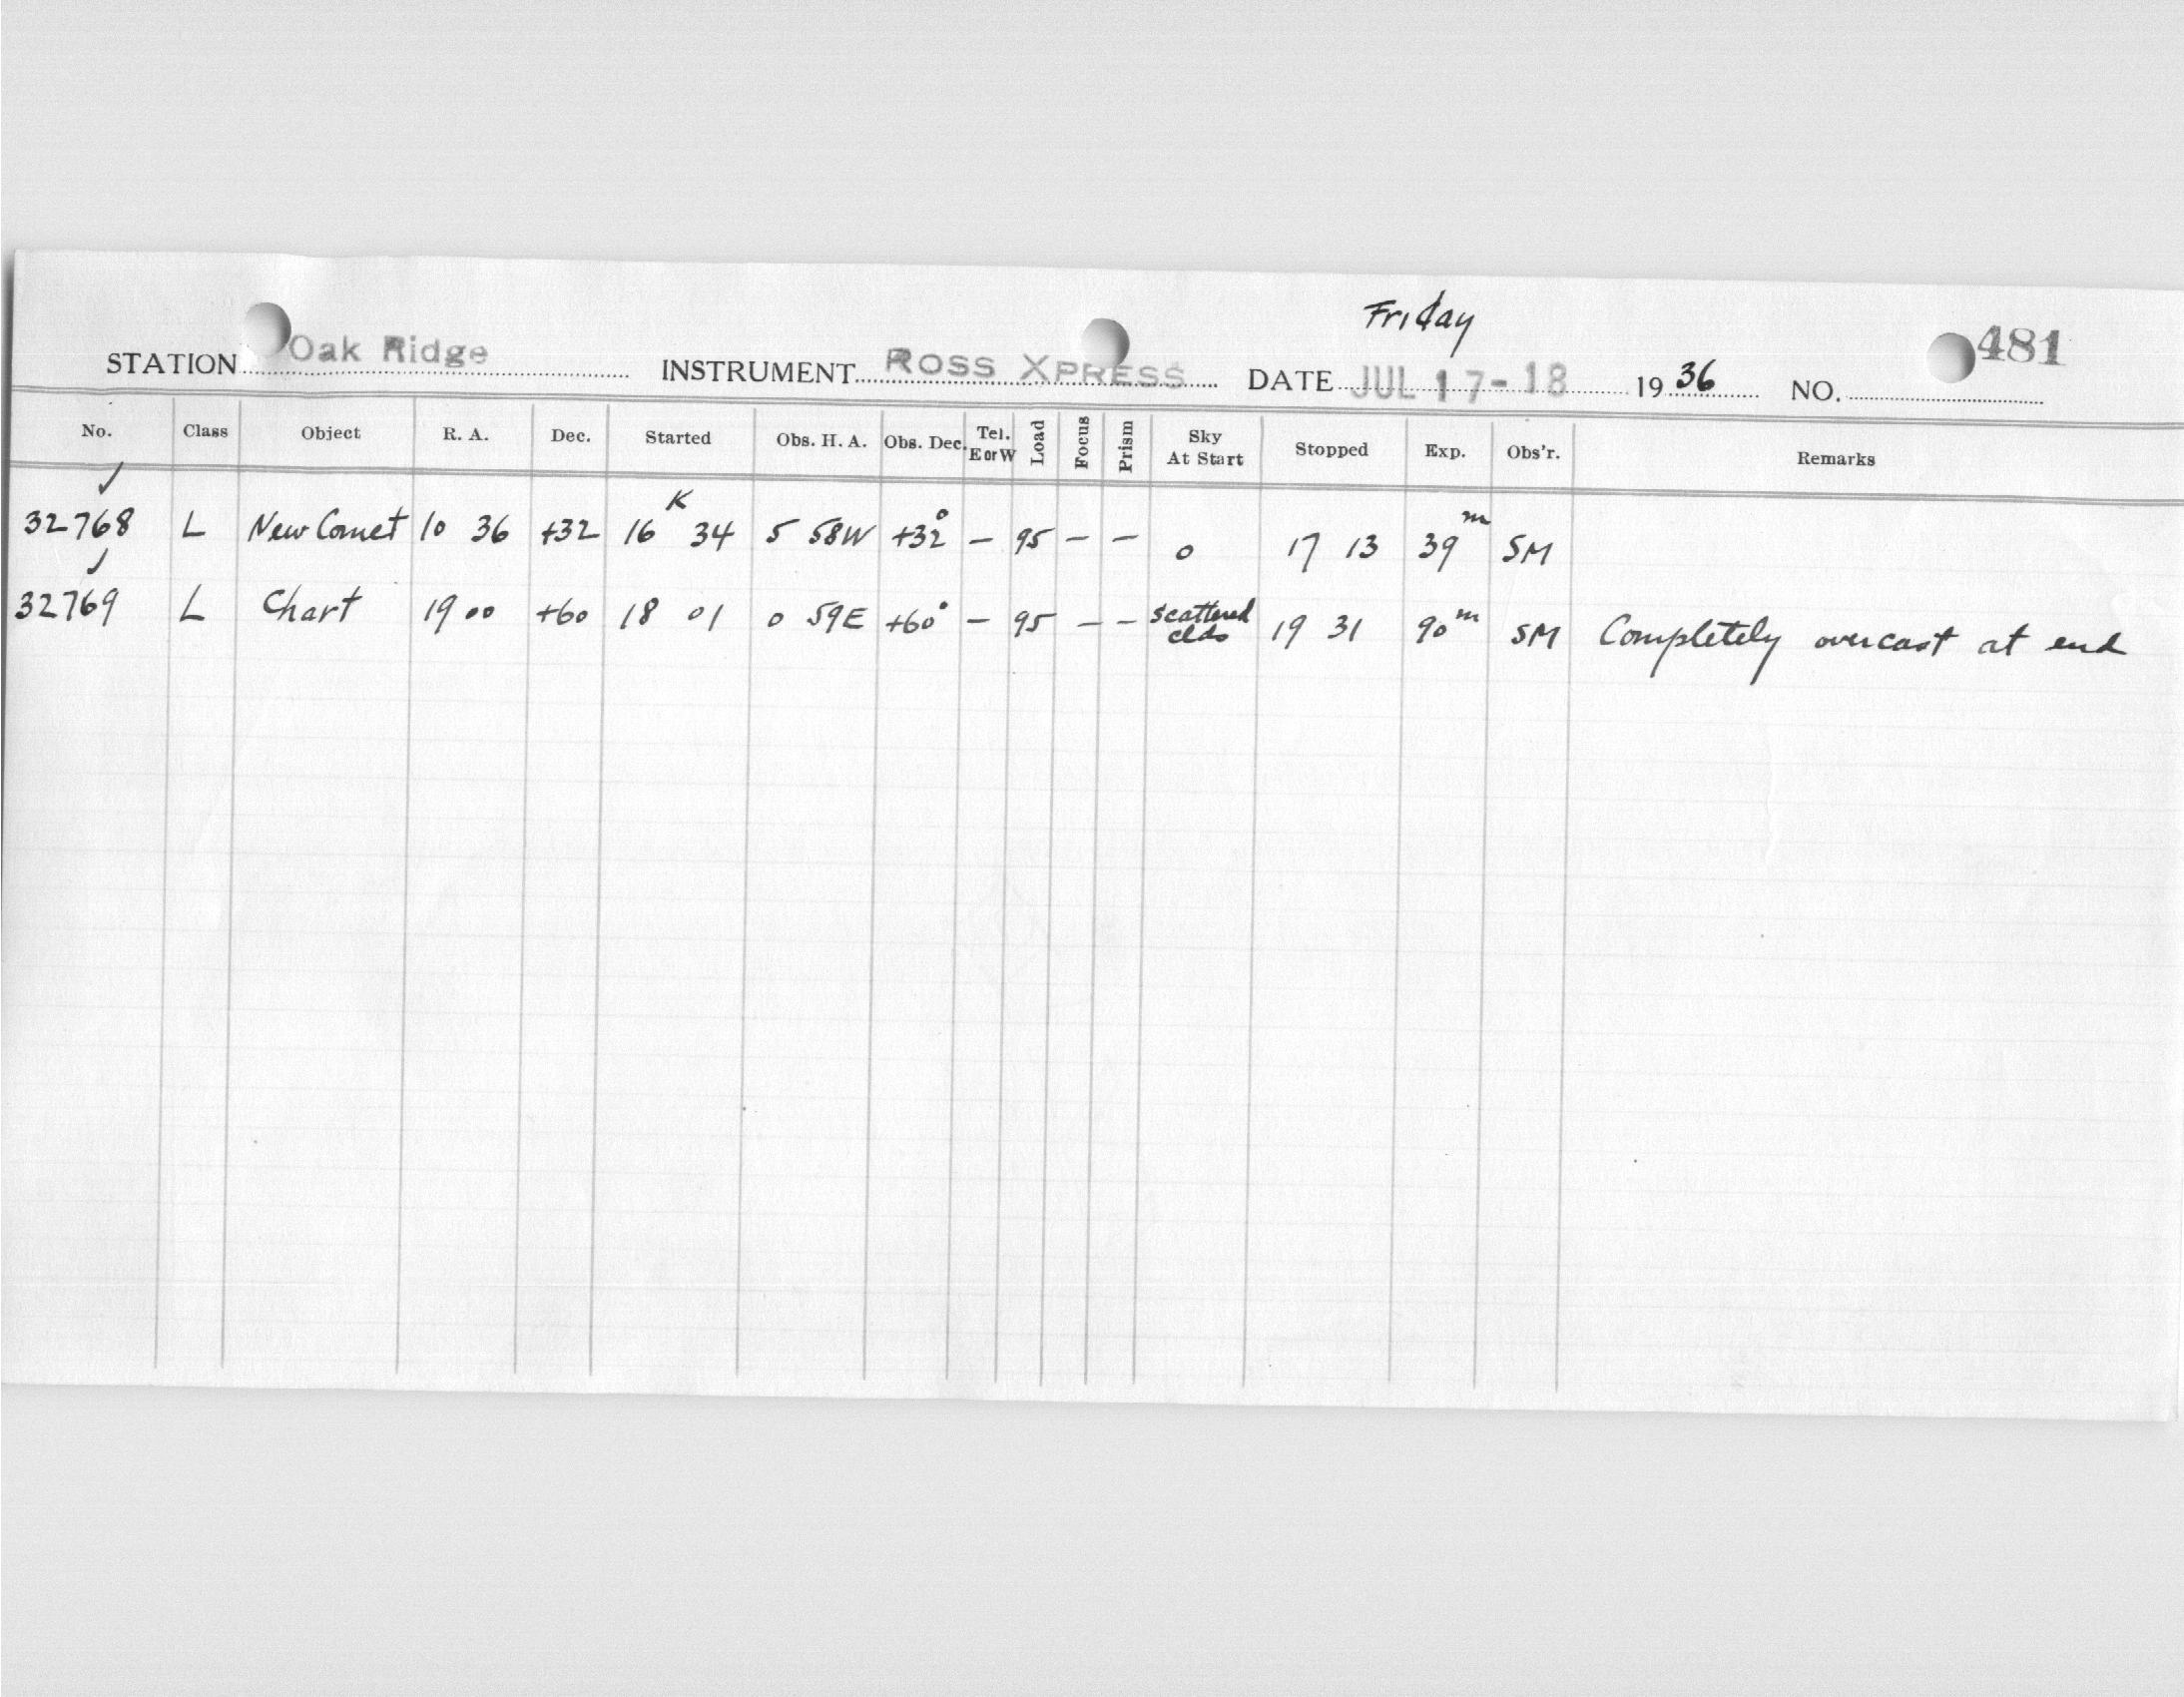 Friday
STATION Oak Ridge INSTRUMENT ROSS XPRESS DATE JUL 17-18 1936 NO. 481
No. Class Object R. A. Dec. Started Obs. H. A. Obs. Dec. Tel. E or W Load Focus Prism Sky At Start Stopped Exp. Obs'r. Remarks
32768 L New Comet 10 36 +32 16 K 34 5 58W +32° – 95 – – 0 17 13 39m SM
32769 L Chart 19 00 +60 18 01 0 59E +60° – 95 – – scattered clds 19 31 90m SM Completely overcast at end